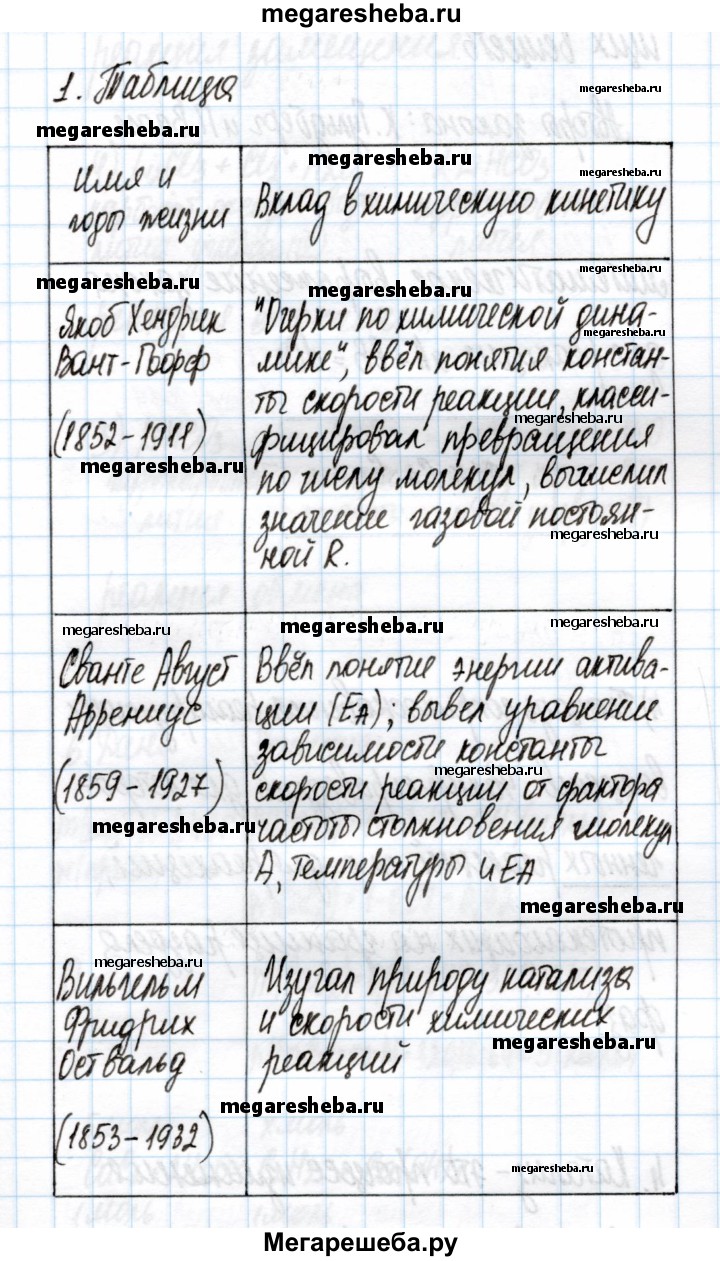 megaresheba.ru
1. Таблица
megaresheba.ru
megaresheba.ru
megaresheba.ru
megaresheba.ru
Имя и
годы жизни
Вклад в химическую кинетику
megaresheba.ru
megaresheba.ru
megaresheba.ru
Якоб Хендрик
Вант-Гофф
(1852-1911)
megaresheba.ru
"Очерки по химической дина-
мике", ввёл понятия констан-
ты скорости реакции, класси-
megaresheba.ru
фицировал превращения
по числу молекул, вычислил
значение газовой постоян-
megaresheba.ru
ной R.
megaresheba.ru
megaresheba.ru
megaresheba.ru
Сванте Август
Аррениус
(1859-1927)
megaresheba.ru
Ввёл понятие энергии актива-
ции (EA); вывел уравнение
зависимости константы
megaresheba.ru
скорости реакции от фактора
частоты столкновения молекул
A, температуры и EA
megaresheba.ru
megaresheba.ru
Вильгельм
Фридрих
Оствальд
(1853-1932)
Изучал природу катализа
и скорости химических
megaresheba.ru
реакций
megaresheba.ru
megaresheba.ru
Мегарешеба.ру